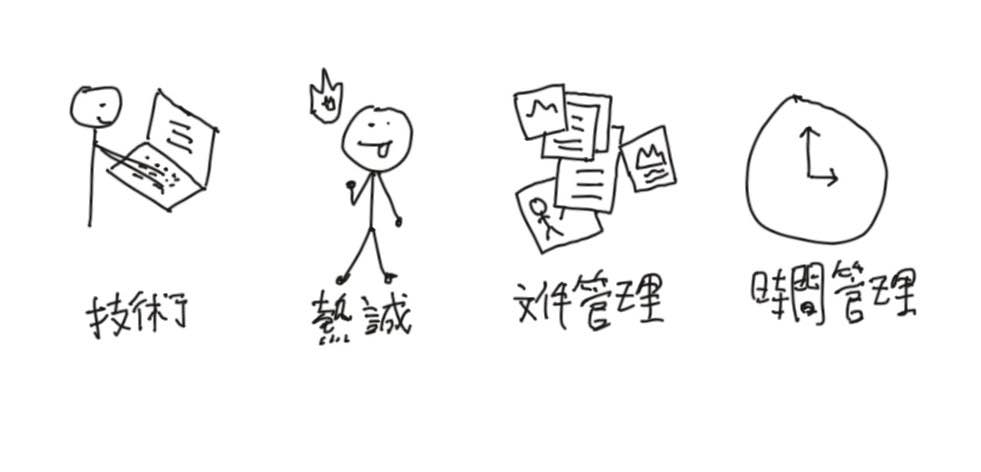 技術
熱誠
文件管理
時間管理